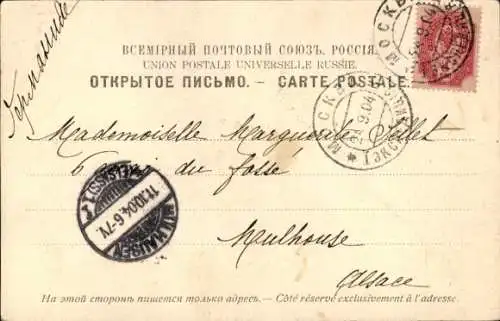 Германие
ВСЕМІРНЫЙ ПОЧТОВЫЙ СОЮЗЪ. РОССІЯ.
UNION POSTALE UNIVERSELLE RUSSIE.
ОТКРЫТОЕ ПИСЬМО. — CARTE POSTALE.
МОСКВА
9.04
Mademoiselle Marguerite
6 du fossé
MÜLHAUSEN
11.10.04.6-7V.
(ELSASS) 1
Mulhouse
Alsace
На этой сторонѣ пишется только адресъ. — Côté réservé exclusivement à l'adresse.